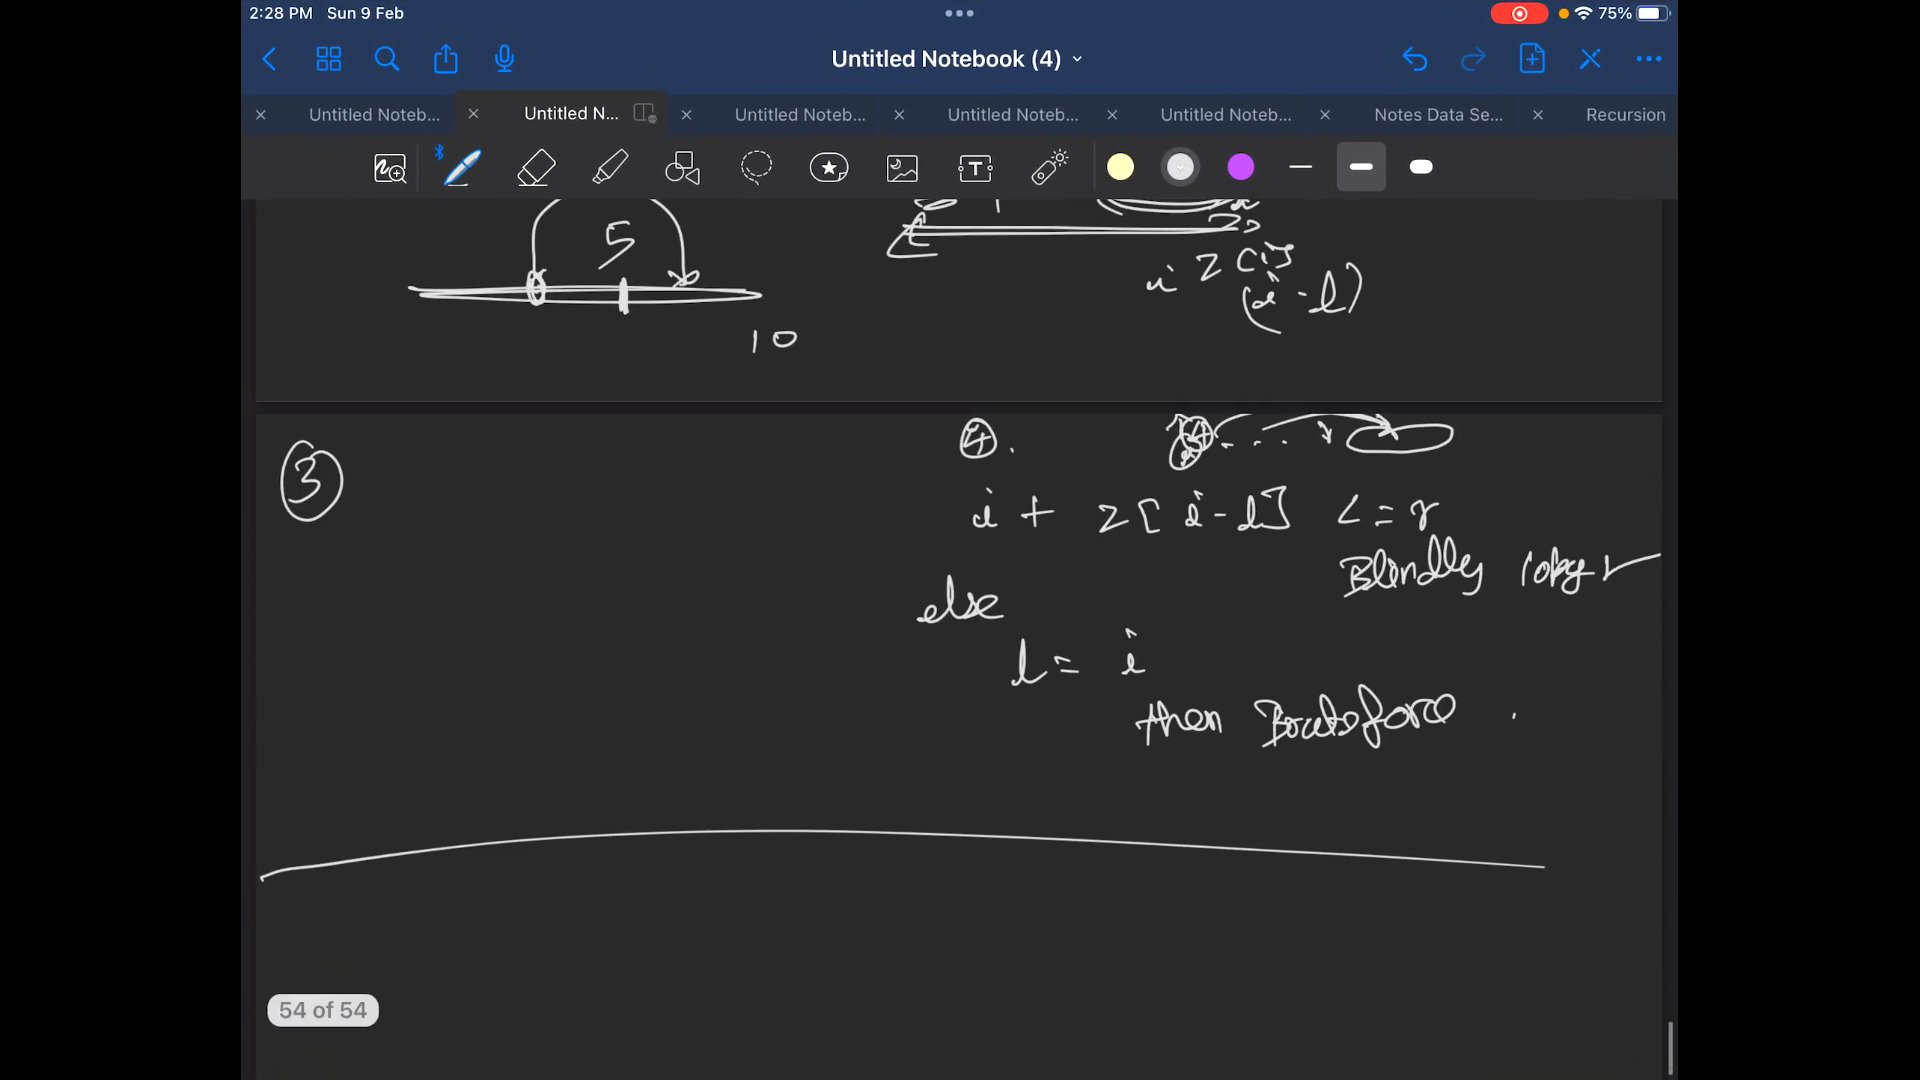 2:28 PM Sun 9 Feb
75%
Untitled Notebook (4)
Untitled Noteb...
Untitled N...
Untitled Noteb...
Untitled Noteb...
Untitled Noteb...
Notes Data Se...
Recursion
5
10
i Z [i]
(i - l)
3
4.
i + Z[i-l] <= r
Blindly copy
else
l = i
then Bruteforce .
54 of 54